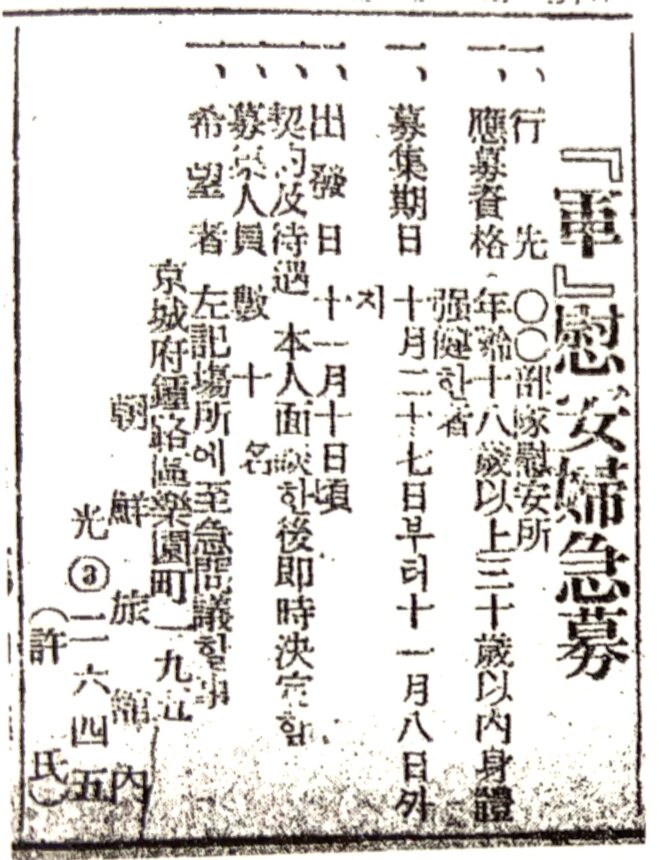 『軍』慰安婦急募
一、行先 〇〇部隊慰安所
一、應募資格、年齡十八歲以上三十歲以內身體
强健한者
一、募集期日 十月二十七日부터十一月八日外
지
一、出發日 十一月十日頃
一、契約及待遇 本人面談한後卽時決定함
一、募集人員 數十名
一、希望者 左記場所에至急問議할事
京城府鍾路區樂園町一九五
朝鮮旅館內
光③二六四五
(許氏)